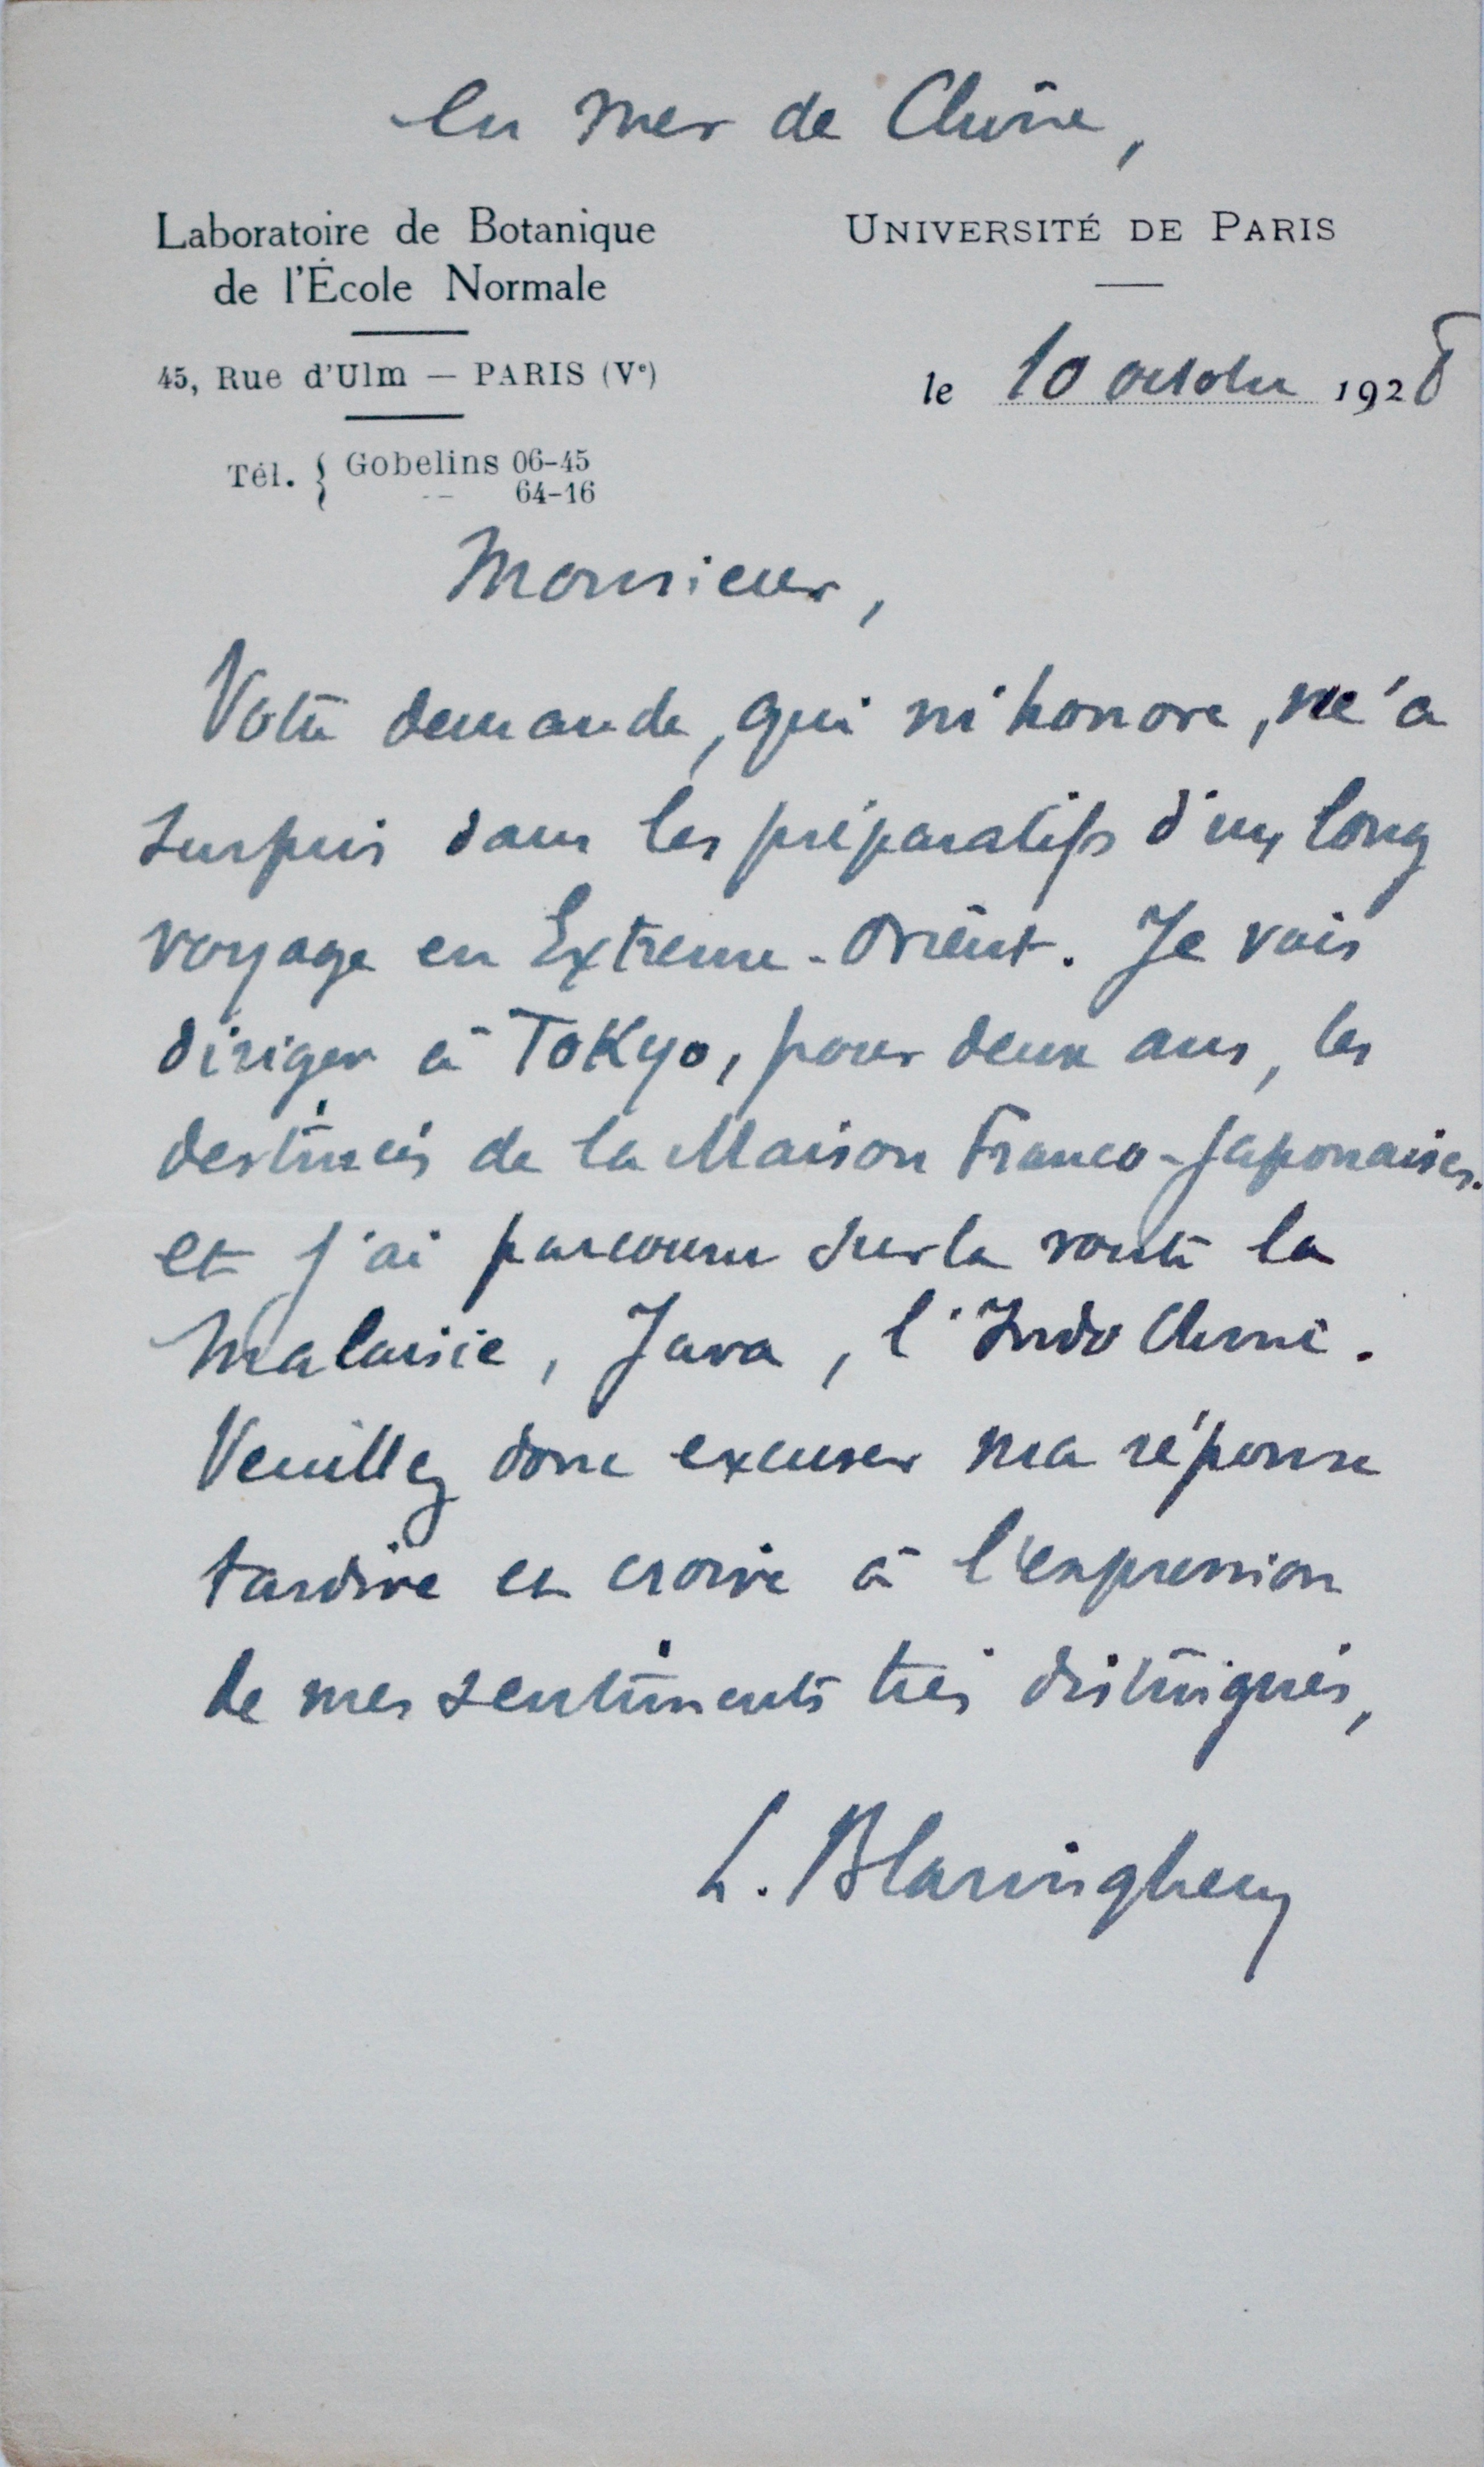 en Mer de Chine,
Laboratoire de Botanique
de l'École Normale
45, Rue d'Ulm — PARIS (Ve)
Tél. { Gobelins 06-45
-- 64-16
UNIVERSITÉ DE PARIS
le 10 octobre 1928
Monsieur,
Votre demande, qui m'honore, m'a
surpris dans les préparatifs d'un long
voyage en Extreme-Orient. Je vais
diriger à Tokyo, pour deux ans, les
destinées de la Maison Franco-Japonaise.
et j'ai parcouru sur la route la
Malaisie, Java, l'Indo Chine.
Veuillez donc excuser ma réponse
tardive et croire à l'expression
de mes sentiments très distingués,
L. Blaringhem